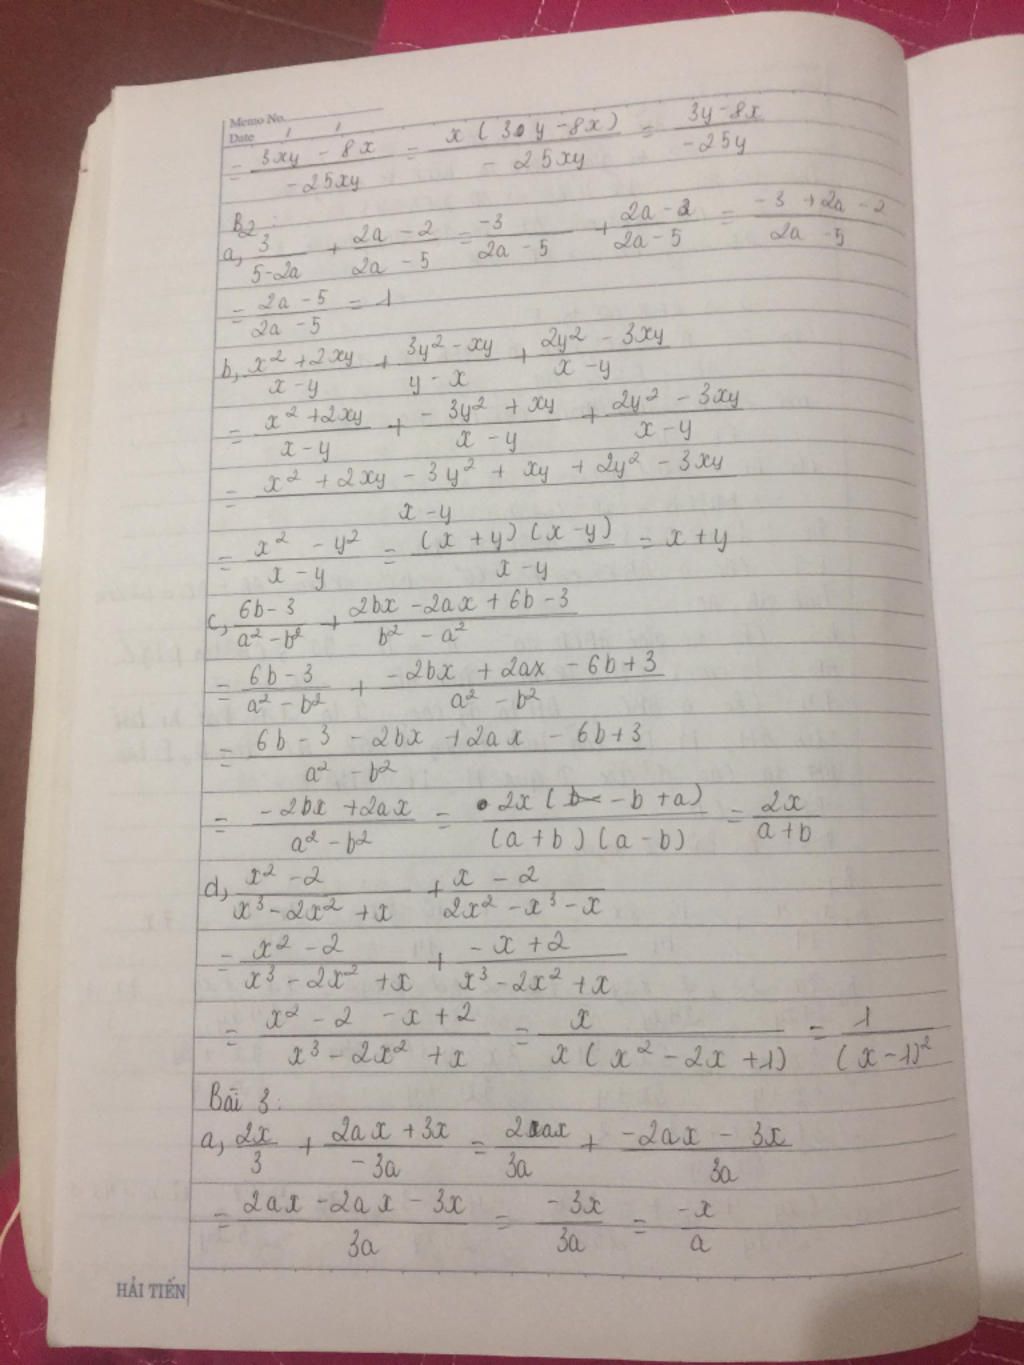 Memo No.
Date / /
= (3xy - 8x)/(-25xy) = x(3y - 8x)/(-25xy) = (3y - 8x)/(-25y)
B2:
a, 3/(5-2a) + (2a - 2)/(2a - 5) = -3/(2a - 5) + (2a - 2)/(2a - 5) = (-3 + 2a - 2)/(2a - 5)
= (2a - 5)/(2a - 5) = 1
b, (x² + 2xy)/(x - y) + (3y² - xy)/(y - x) + (2y² - 3xy)/(x - y)
= (x² + 2xy)/(x - y) + (-3y² + xy)/(x - y) + (2y² - 3xy)/(x - y)
= (x² + 2xy - 3y² + xy + 2y² - 3xy)/(x - y)
= (x² - y²)/(x - y) = (x + y)(x - y)/(x - y) = x + y
c, (6b - 3)/(a² - b²) + (2bx - 2ax + 6b - 3)/(b² - a²)
= (6b - 3)/(a² - b²) + (-2bx + 2ax - 6b + 3)/(a² - b²)
= (6b - 3 - 2bx + 2ax - 6b + 3)/(a² - b²)
= (-2bx + 2ax)/(a² - b²) = 2x(-b + a)/((a + b)(a - b)) = 2x/(a + b)
d, (x² - 2)/(x³ - 2x² + x) + (x - 2)/(2x² - x³ - x)
= (x² - 2)/(x³ - 2x² + x) + (-x + 2)/(x³ - 2x² + x)
= (x² - 2 - x + 2)/(x³ - 2x² + x) = x/(x(x² - 2x + 1)) = 1/(x - 1)²
Bài 3:
a, 2x/3 + (2ax + 3x)/(-3a) = 2ax/3a + (-2ax - 3x)/3a
= (2ax - 2ax - 3x)/3a = -3x/3a = -x/a
HẢI TIẾN